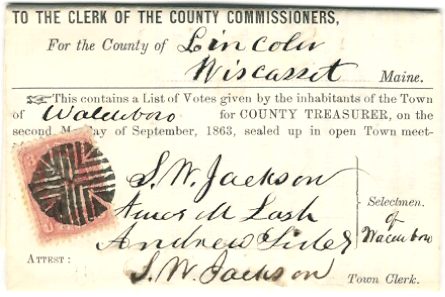 TO THE CLERK OF THE COUNTY COMMISSIONERS,
For the County of Lincoln
Wiscasset Maine.
☞This contains a List of Votes given by the inhabitants of the Town
of Waldoboro for COUNTY TREASURER, on the
second M day of September, 1863, sealed up in open Town meet-
S. W. Jackson
Amos M Lash
Andrew Sides
Selectmen
of
Waldoboro
ATTEST: S. W. Jackson Town Clerk.